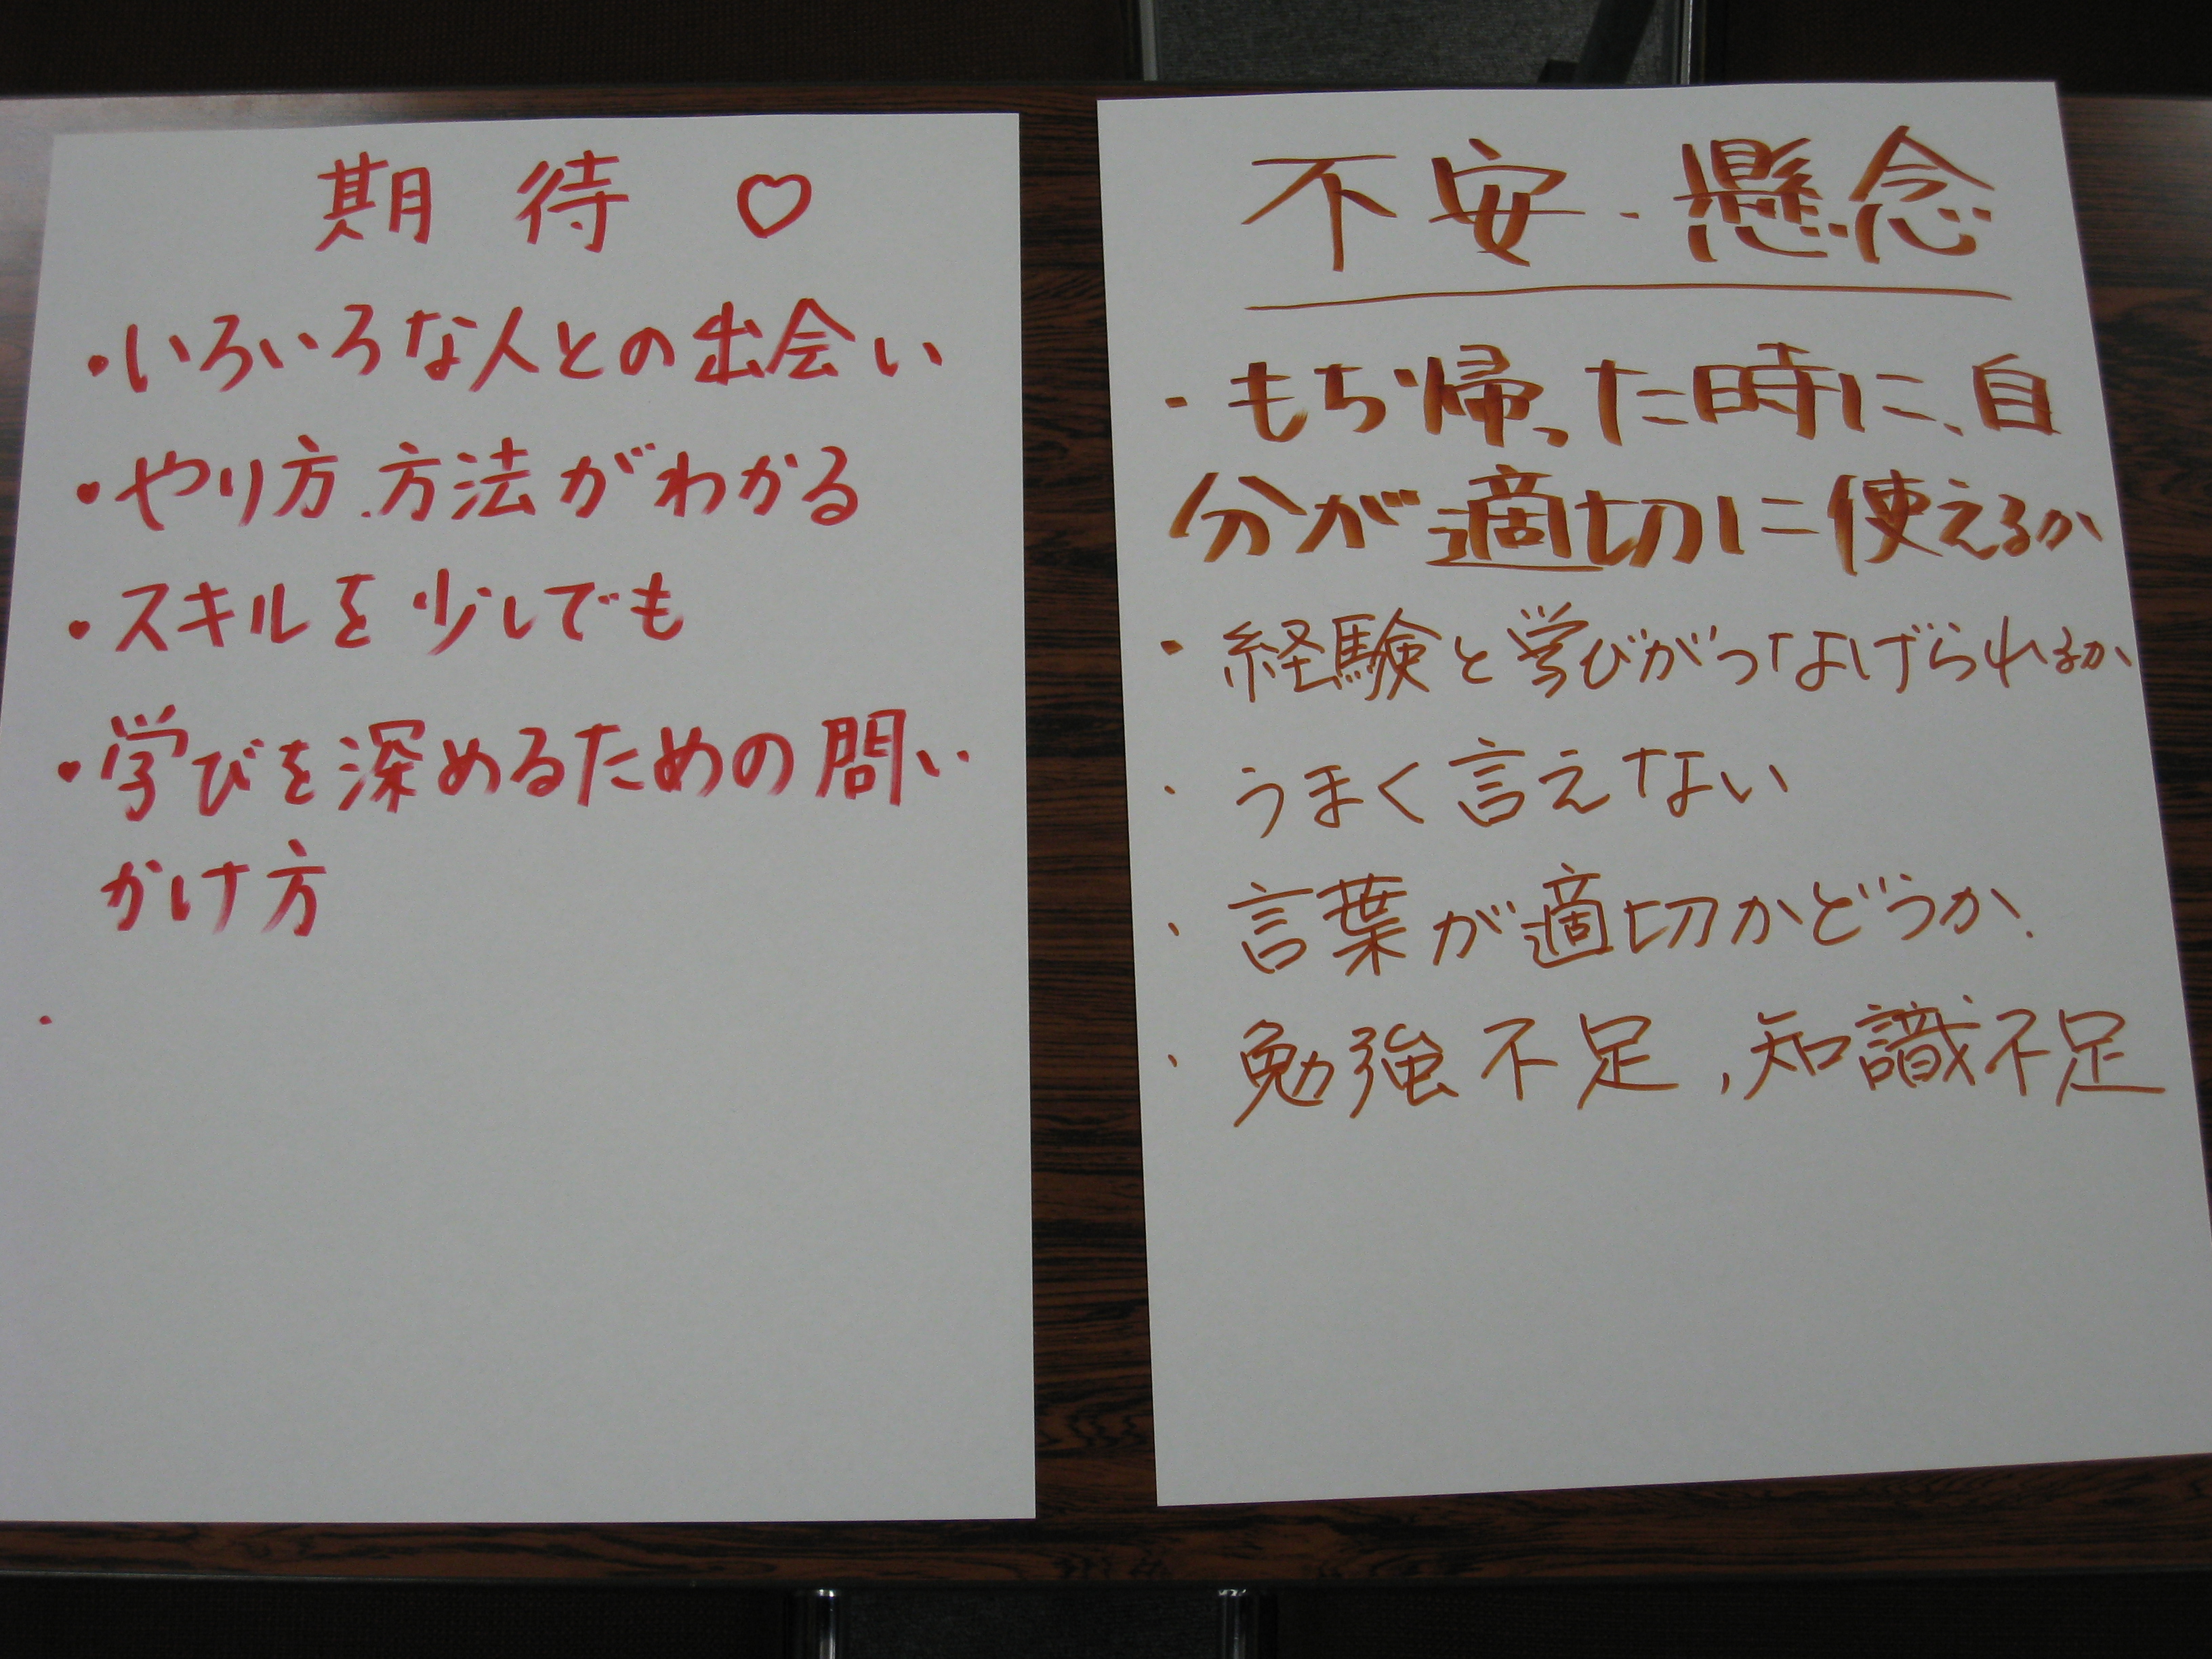 期待 ♡
・いろいろな人との出会い
・やり方、方法がわかる
・スキルを少しでも
・学びを深めるための問い
かけ方
・
不安・懸念
・もち帰った時に、自
分が適切に使えるか
・経験と学びがつなげられるか
・うまく言えない
・言葉が適切かどうか、
・勉強不足,知識不足